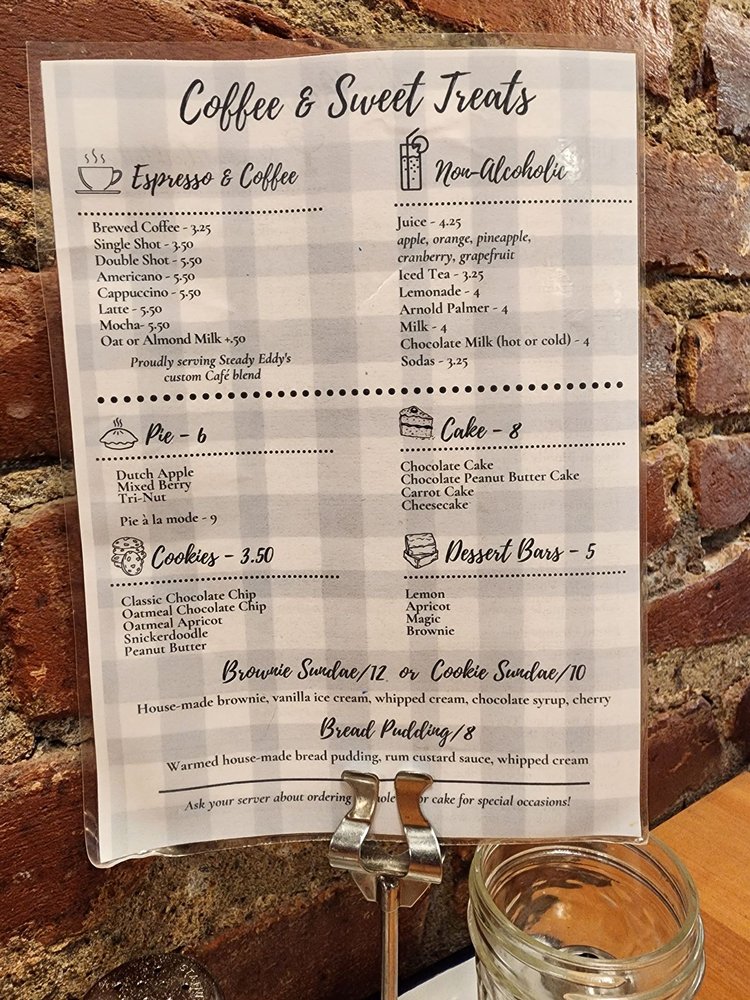 Coffee & Sweet Treats
Espresso & Coffee
Brewed Coffee - 3.25
Single Shot - 3.50
Double Shot - 5.50
Americano - 5.50
Cappuccino - 5.50
Latte - 5.50
Mocha- 5.50
Oat or Almond Milk +.50
Proudly serving Steady Eddy's
custom Café blend
Non-Alcoholic
Juice - 4.25
apple, orange, pineapple,
cranberry, grapefruit
Iced Tea - 3.25
Lemonade - 4
Arnold Palmer - 4
Milk - 4
Chocolate Milk (hot or cold) - 4
Sodas - 3.25
Pie - 6
Dutch Apple
Mixed Berry
Tri-Nut
Pie à la mode - 9
Cake - 8
Chocolate Cake
Chocolate Peanut Butter Cake
Carrot Cake
Cheesecake
Cookies - 3.50
Classic Chocolate Chip
Oatmeal Chocolate Chip
Oatmeal Apricot
Snickerdoodle
Peanut Butter
Dessert Bars - 5
Lemon
Apricot
Magic
Brownie
Brownie Sundae/12 or Cookie Sundae/10
House-made brownie, vanilla ice cream, whipped cream, chocolate syrup, cherry
Bread Pudding/8
Warmed house-made bread pudding, rum custard sauce, whipped cream
Ask your server about ordering or cake for special occasions!